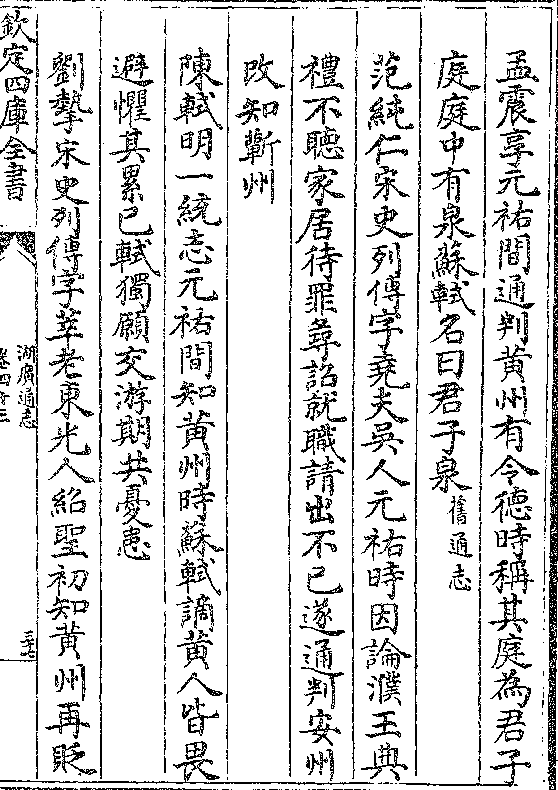 孟震享元祐間通判黄州有令德時稱其庭為君子
庭庭中有泉蘇軾名曰君子泉舊通志
范純仁宋史列傳字堯夫吳人元祐時因論濮王典
禮不聽家居待罪尋詔就職請出不已遂通判安州
改知蘄州
陳軾明一統志元祐間知黄州時蘇軾謫黄人皆畏
避懼其累己軾獨願交游期共憂患
劉摯宋史列傳字莘老東光人紹聖初知黄州再貶
欽定四庫全書
湖廣通志